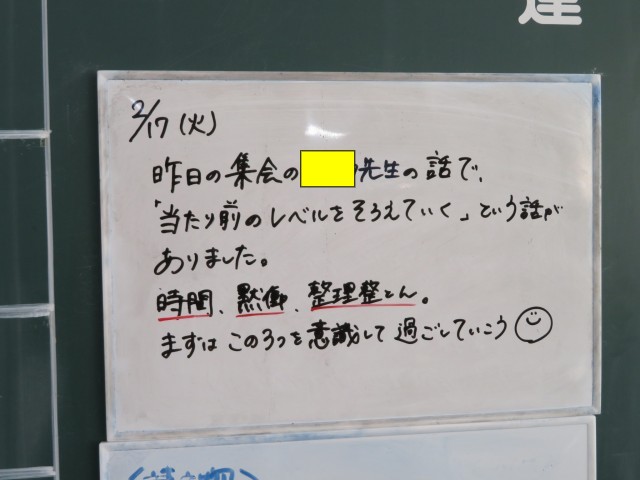 達
2/17(火)
昨日の集会の 先生の話で、
「当たり前のレベルをそろえていく」という話が
ありました。
時間、黙働、整理整とん。
まずはこの3つを意識して過ごしていこう